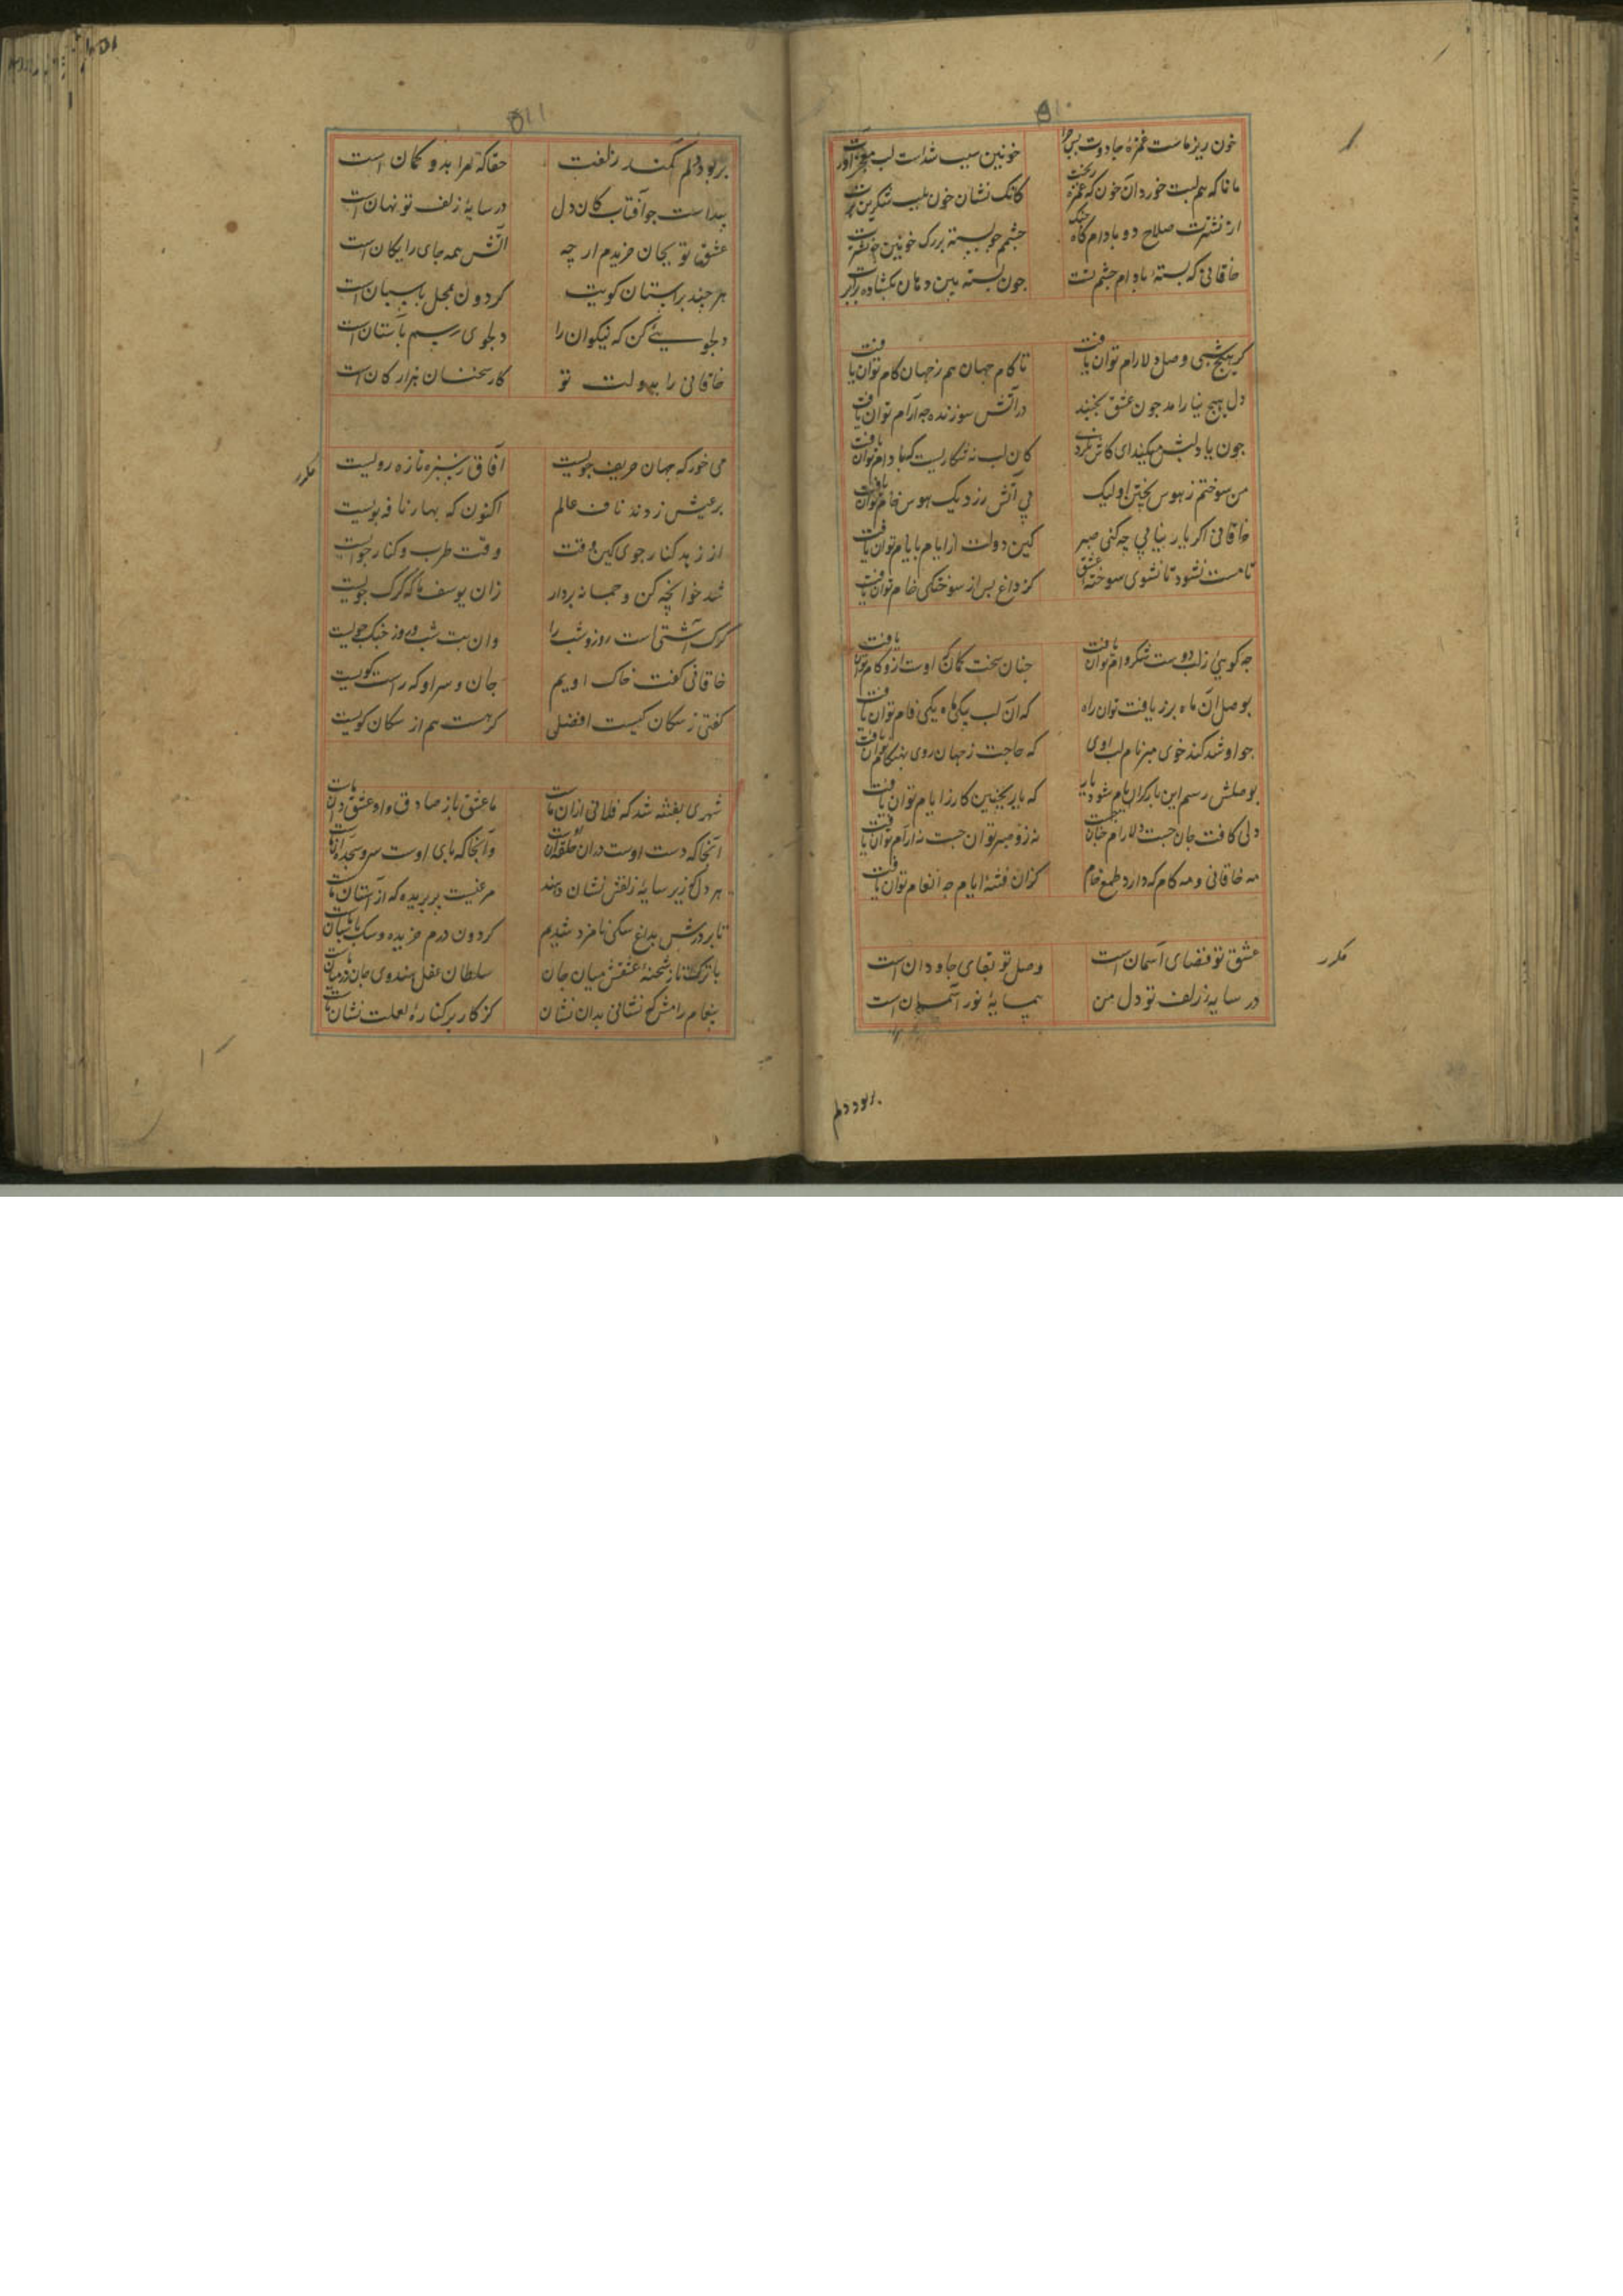 ۵۱۰
خون ریز ماست غمزهٔ جادوت پس چرا خونین سبب شداست لب معجز آورت
مانا که هم لبت خورد آن خون که غمزه ریخت کانک نشان خون بلب شکرین
از نشترت صلاح دو بادام گاه جنک چشمم چو پسته بر رک خونین چو نشترت
خاقانی که بستهٔ بادام چشم تست چون پسته بین دهان بکشاده برابرت
کر هیچ شبی وصل دلارام توان یافت تا کام جهان هم ز جهان کام توان یافت
دل هیچ نیارامد جون عشق بجنبد در آتش سوزنده جه آرام توان یافت
جون یاد لبش میکنی ای کاش کان لب نه شکاریست کها دام توان یافت
من سوختم ز هوس پختن او لیک بی آتش رز دیک هوس خام توان یافت
خاقانی اکر یار نیابی چه کنی صبر کین دولت از ایام بایام توان یافت
تا مست نشود تا نشوی سوختهٔ عشق کز داغ پس از سوختکی خام توان یافت
جه کوئی ز لب دوست شکر وام توان یافت جنان سخت کمان کوست ازو کام توان یافت
بوصل آن ماه برز یافت توان راه که آن لب بیکی ماه یکی وام توان یافت
جو او شد کند خوی مبر نام لب اوی که حاجت ز جهان روی بهنکام توان یافت
بوصلش رسم این بار کر ایام شود یار که یاری بجنین کار ز ایام توان یافت
دلی کافت جان جست دلارام جنان جست نه زو صبر توان جست نه آرام توان یافت
مه خاقانی و مه کام که دارد طمع خام کزان فتنهٔ ایام جه انعام توان یافت
عشق تو قضای آسمان است وصل تو بقای جاودان است
مکرر
در سایهٔ زلف تو دل من همسایهٔ نور آسمان است
بربود دلم
۵۱۱
بربود دلم کمند زلفت حقا که مرا بدو کمان است
پیداست جو آفتاب کان دل در سایهٔ زلف تو نهان است
عشق تو بجان خریدم ار چه آتش همه جای رایکان است
هر جند بر آستان کویت کردون بمحل پاسبان است
دلجویئی کن که نیکوان را دلجوی رسم باستان است
خاقانی را بدولت تو کار سخنان هزار کان است
می خور که جهان حریف جویست آفاق ز سبزه تازه رویست
مکرر
بر عیش زدند ناف عالم اکنون که بهار نافه بویست
از زهد کنار جوی کین وقت وقت طرب و کنار جویست
شد خوانچه کن و جهانه بردار زان یوسف ما که کرک جویست
کرک آشتی است روز و شب را وان بت شب و روز جنک جویست
خاقانی کفت خاک اویم جان و سر او که راست کویست
کفتی ز سکان کیست افضلی کر هست هم از سکان کویست
شهری بفتنه شد که فلانی ازان ماست ما عشق باز صادق و او عشق دان ماست
آنجا که دست اوست در ان حلقه وآنجا که پای اوست سر و سجده
هر دل که زیر سایهٔ زلفش نشان دهند مرغیست بر پریده که از آشیان ماست
تا بر درش بداغ سکی نامزد شدیم کردون درم خریده و سک پاسبان ماست
با ترکتاز شحنهٔ عشقش میان جان سلطان عقل هندوی جان در میان ماست
بیغام رامش که نشانی بدان نشان کز کاز بر کنارهٔ لعلت نشان ماست